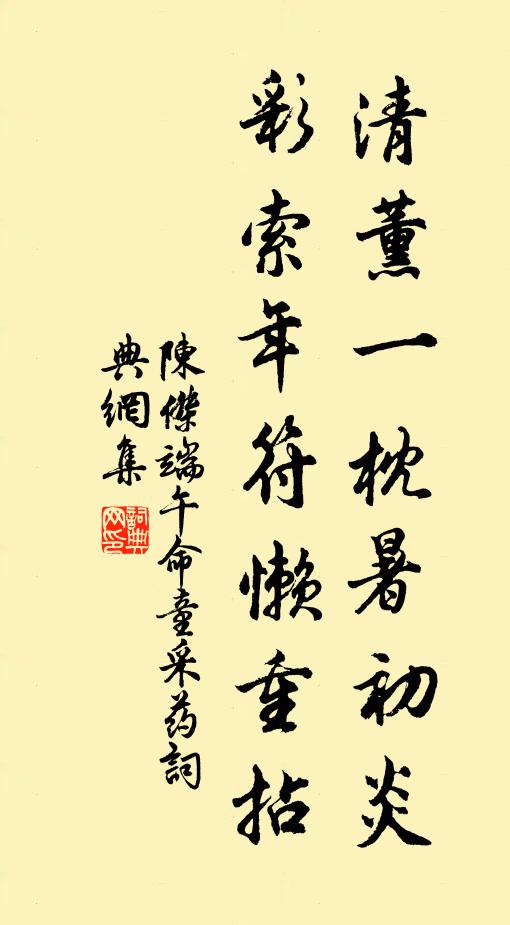 清薰一枕暑初炎
彩索年符懶重拈
陳傑端午命童采药詞
典網集
詞典网印